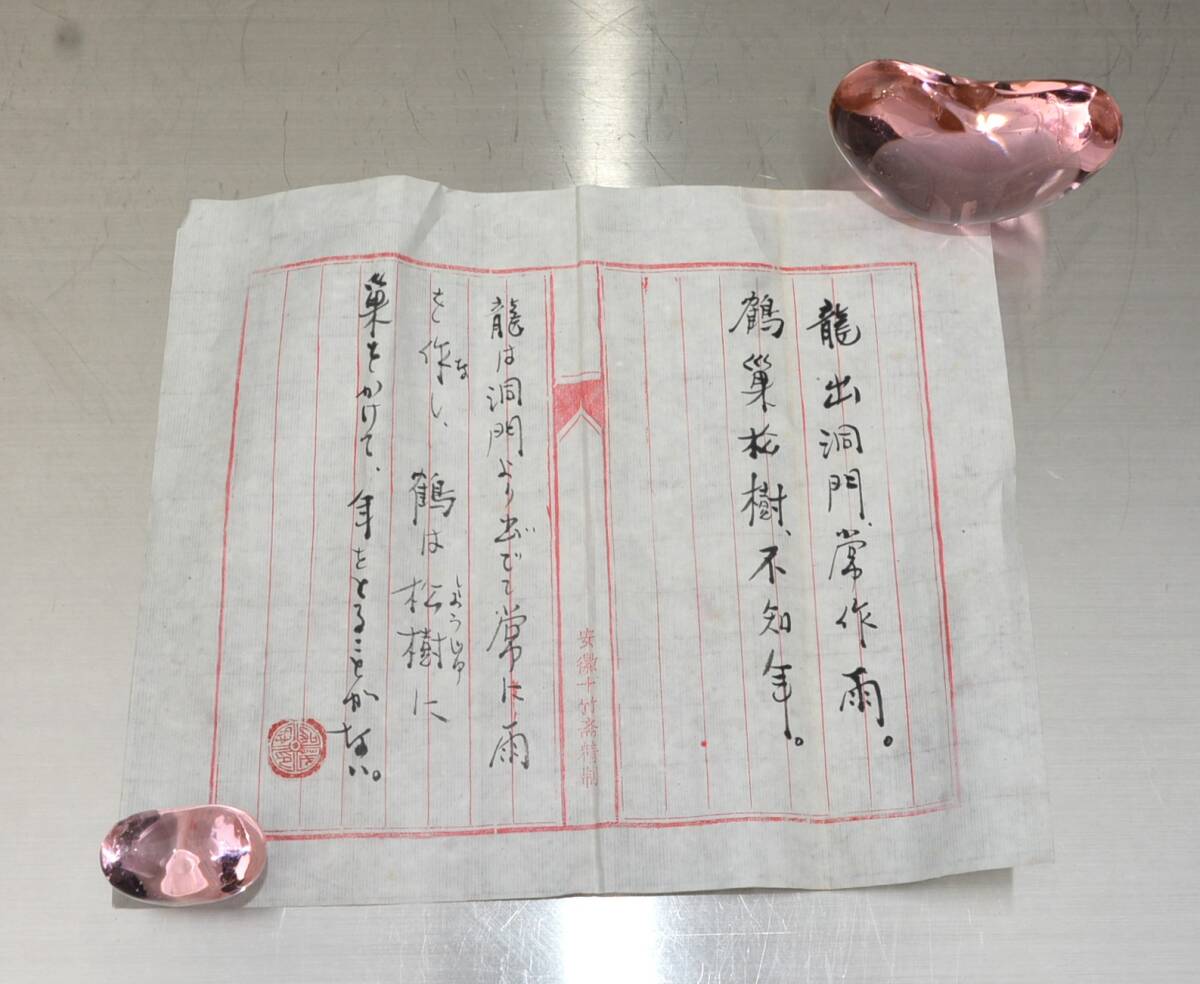 龍出洞門、常作雨。
鶴巣松樹、不知年。
安徽十竹斎特制
龍は洞門より出でて常に雨
を作し、鶴は松樹に
な
しょうじゅ
巣をかけて、年をとることがない。